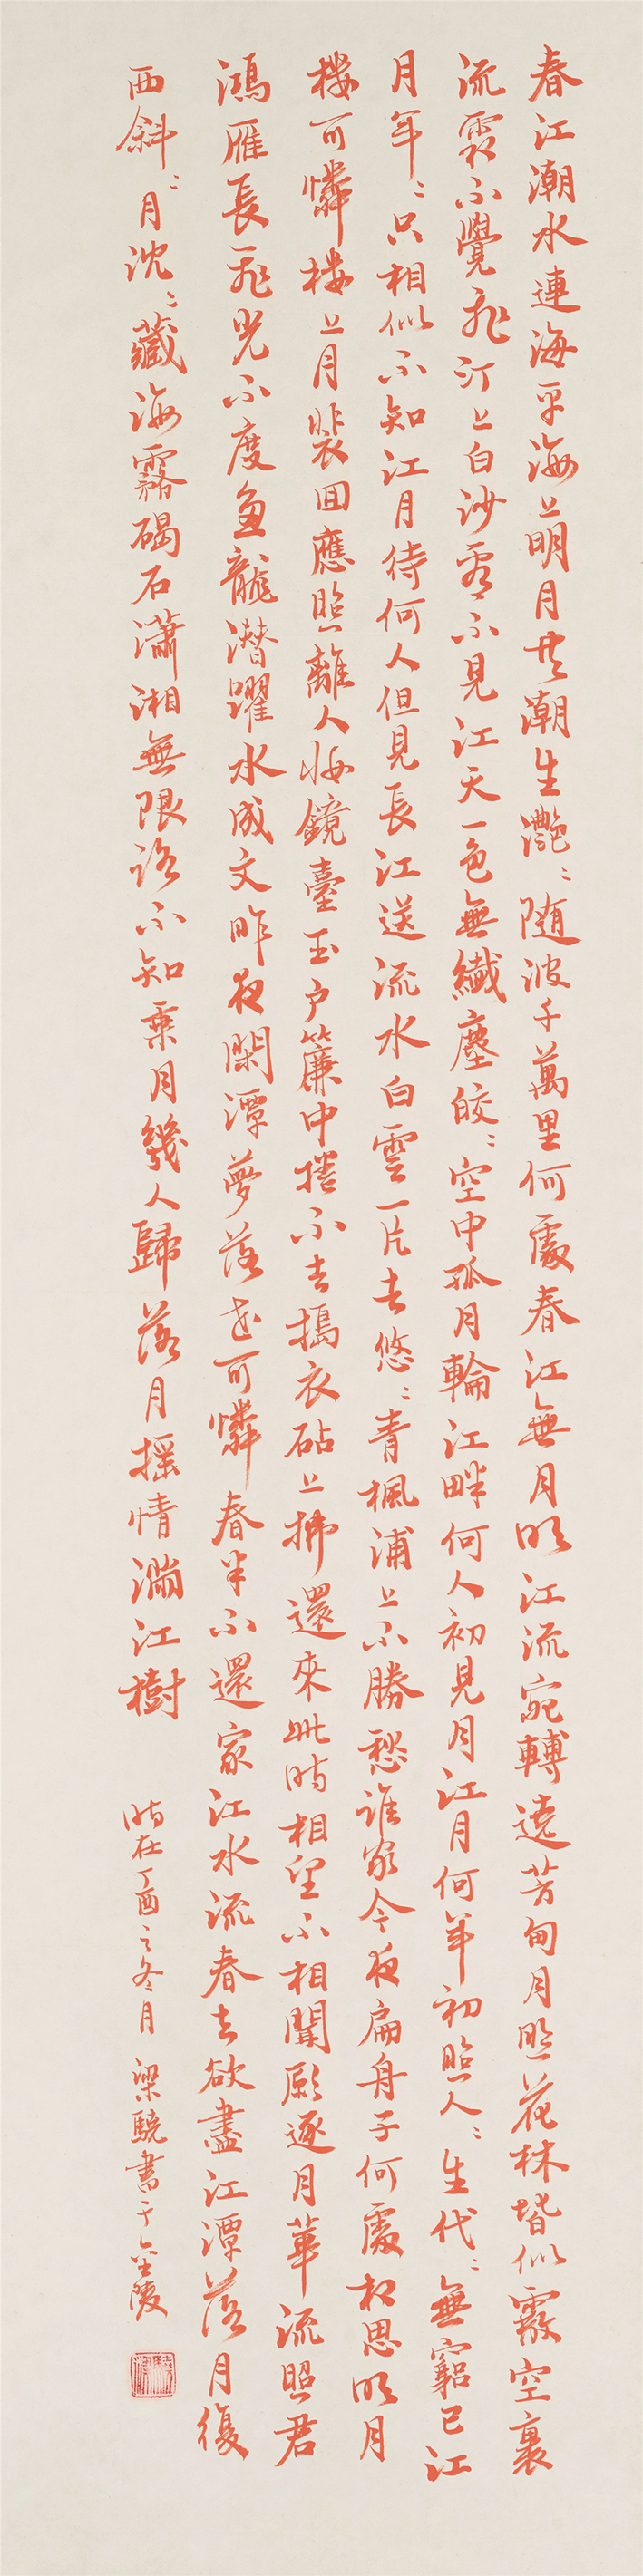 春江潮水連海平海上明月共潮生灔〻随波千萬里何處春江無月明江流宛轉遶芳甸月照花林皆似霰空裏
流霜不覺飛汀上白沙看不見江天一色無纖塵皎〻空中孤月輪江畔何人初見月江月何年初照人〻生代〻無窮已江
月年〻只相似不知江月待何人但見長江送流水白雲一片去悠〻青楓浦上不勝愁誰家今夜扁舟子何處相思明月
樓可憐樓上月裴回應照離人妝鏡臺玉户簾中捲不去擣衣砧上拂還來此時相望不相聞願逐月華流照君
鴻雁長飛光不度魚龍潛躍水成文昨夜閑潭夢落花可憐春半不還家江水流春去欲盡江潭落月復
西斜〻月沈〻藏海霧碣石瀟湘無限路不知乘月幾人歸落月摇情滿江樹
時在丁酉之冬月 梁驍書于金陵